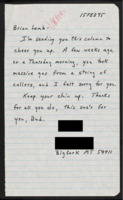 15FEB95
Brian Lamb-
I'm sending you this column to
cheer you up. A few weeks ago
on a Thursday morning, you took
massive gas from a string of
callers, and I felt sorry for you.
Keep your chin up. Thanks
for all you do, this one's for
you, Bud.
Bigfork MT 59911